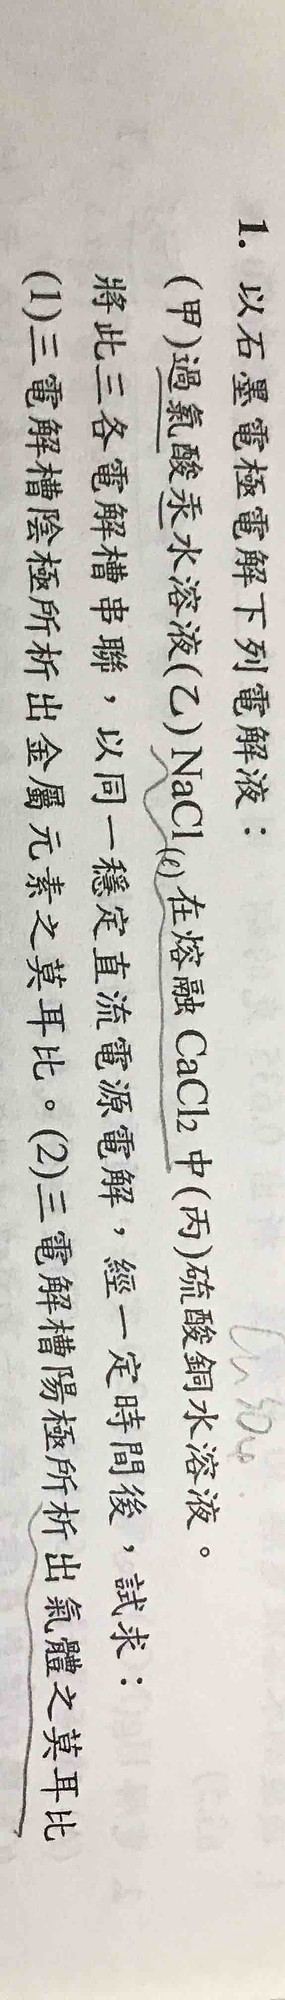 1. 以石墨電極電解下列電解液：
(甲)過氯酸汞水溶液(乙)NaCl(ℓ)在熔融 CaCl₂ 中(丙)硫酸銅水溶液。
CuSO₄
將此三各電解槽串聯，以同一穩定直流電源電解，經一定時間後，試求：
(1)三電解槽陰極所析出金屬元素之莫耳比。(2)三電解槽陽極所析出氣體之莫耳比